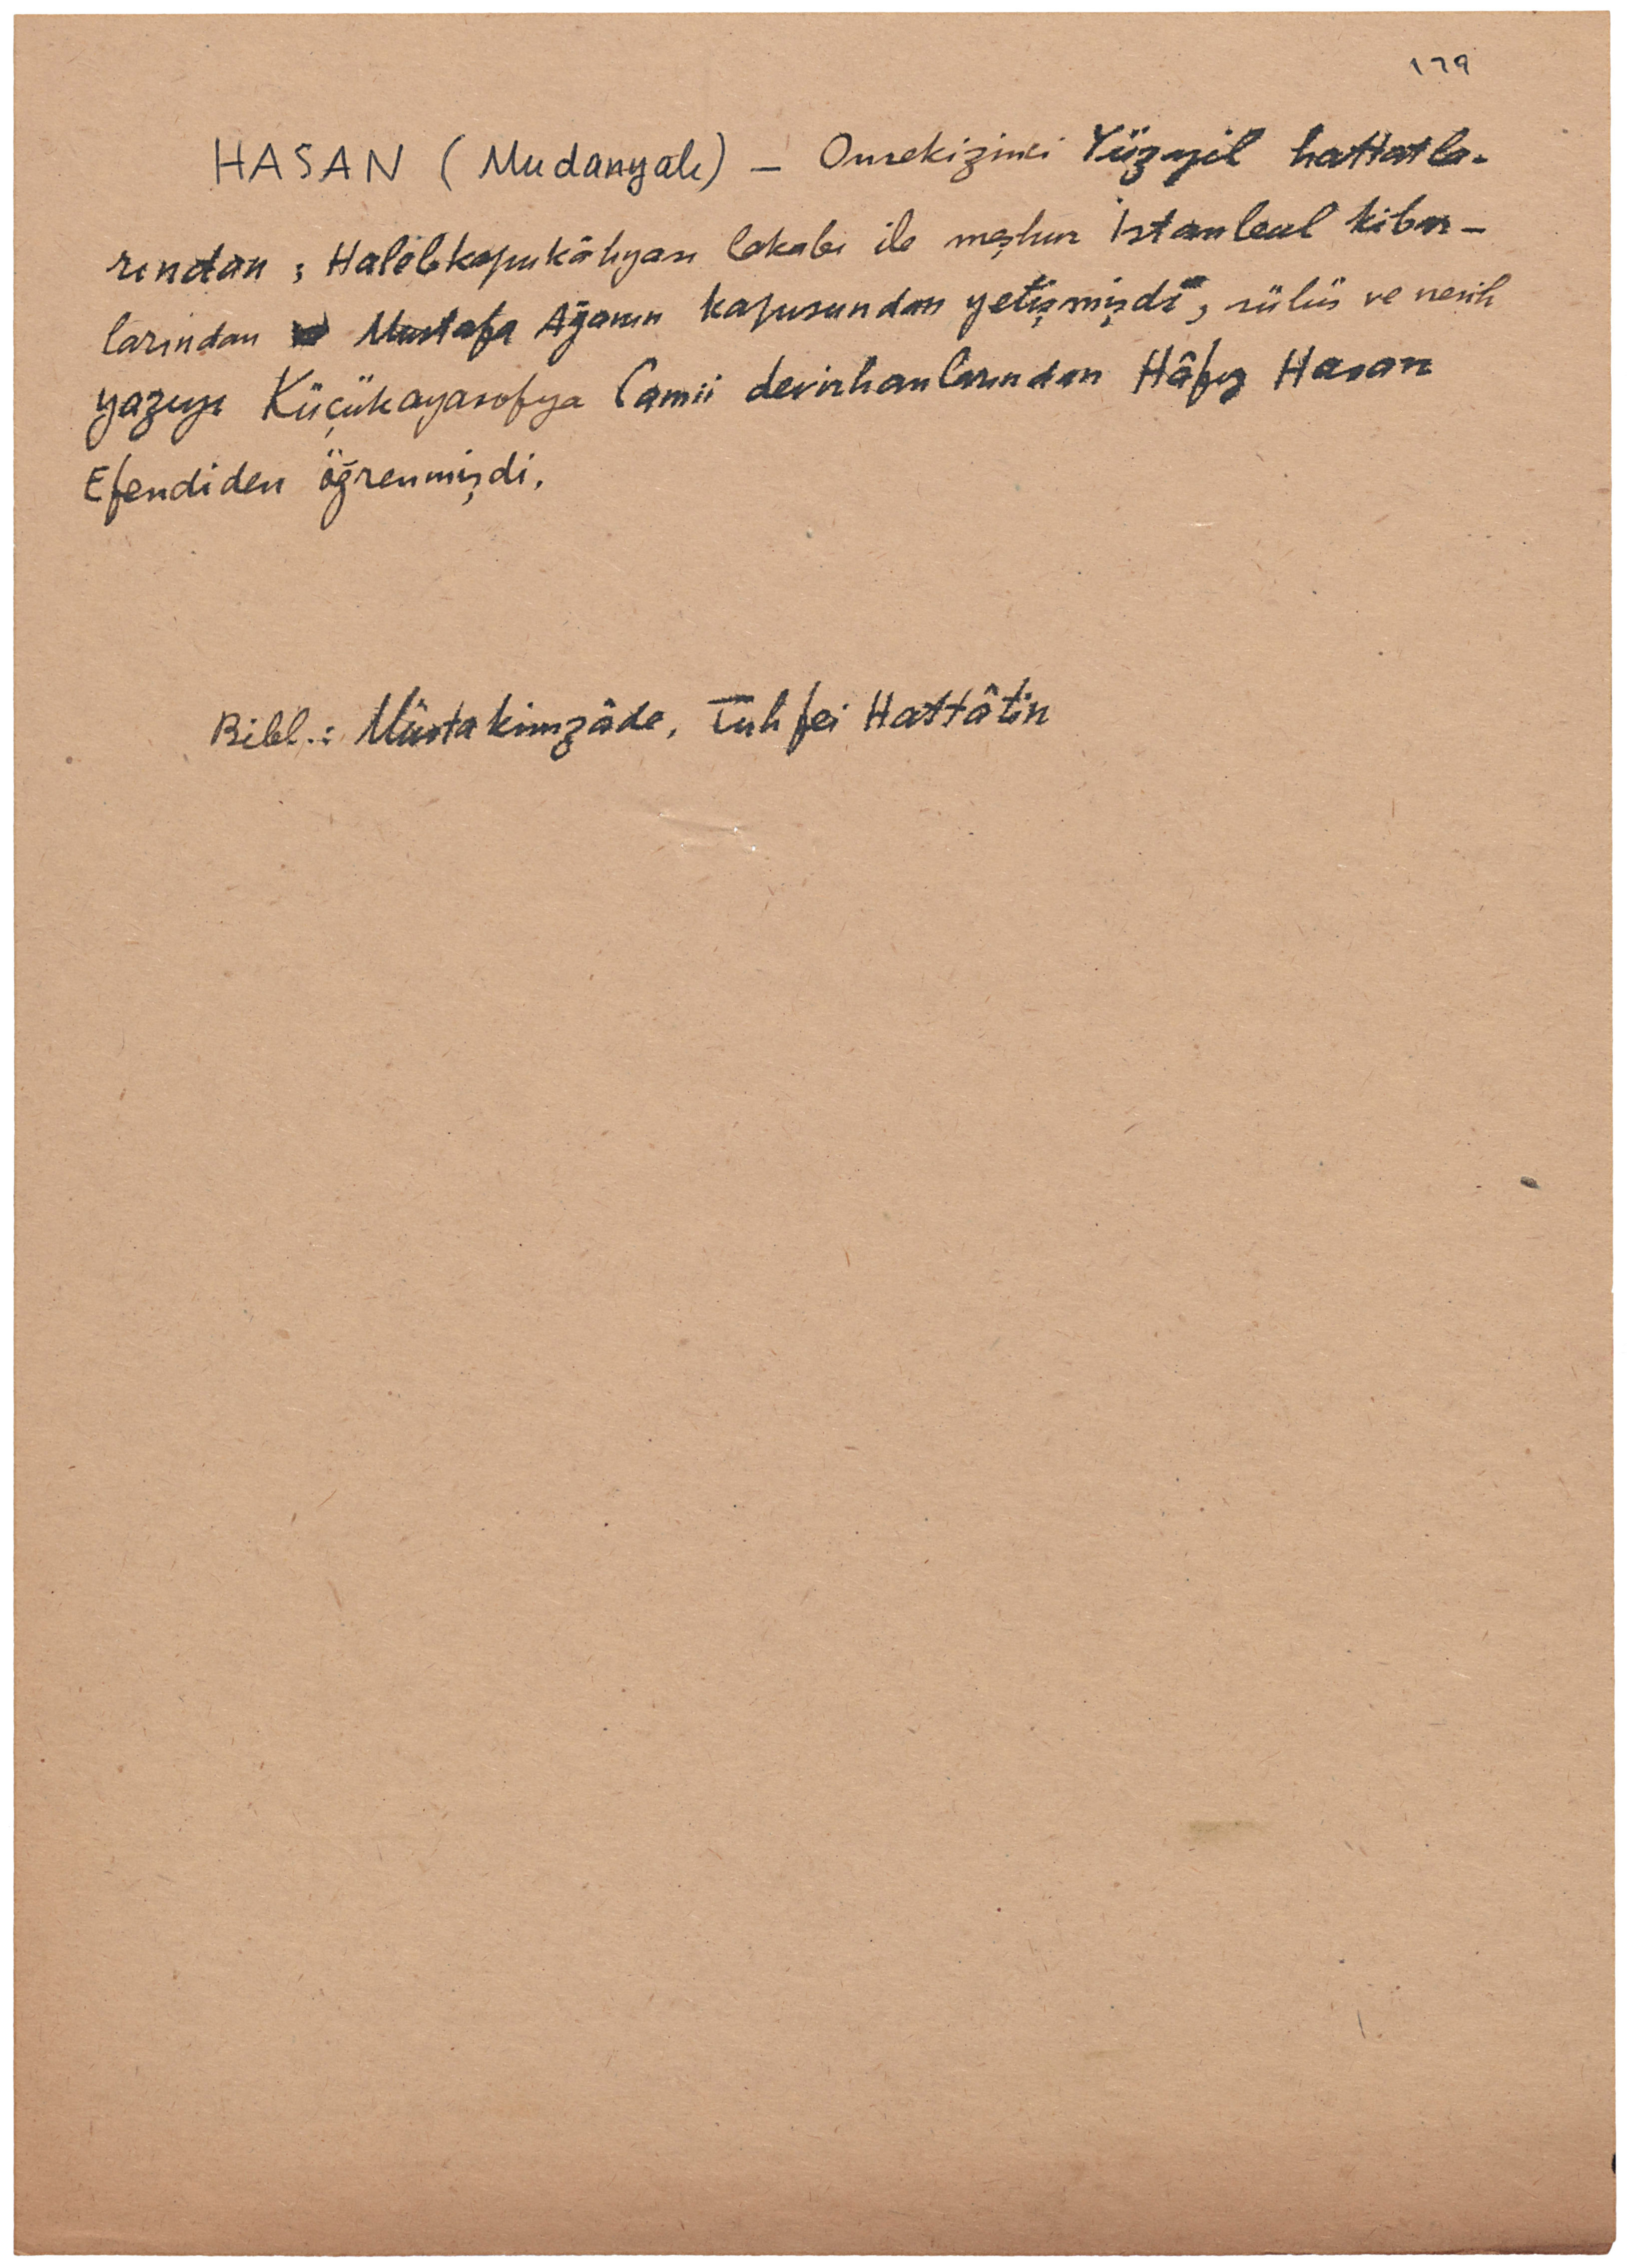 179
HASAN (Mudanyalı) — Onsekizinci Yüzyıl hattatla-
rından; Halebkapukâhyası lakabı ile meşhur İstanbul kibar-
larından Mustafa Ağanın kapusundan yetişmişdi, sülüs ve nesih
yazıyı Küçükayasofya Camii devirhanlarından Hâfız Hasan
Efendiden öğrenmişdi.
Bibl.: Müstakimzâde, Tuhfei Hattâtin